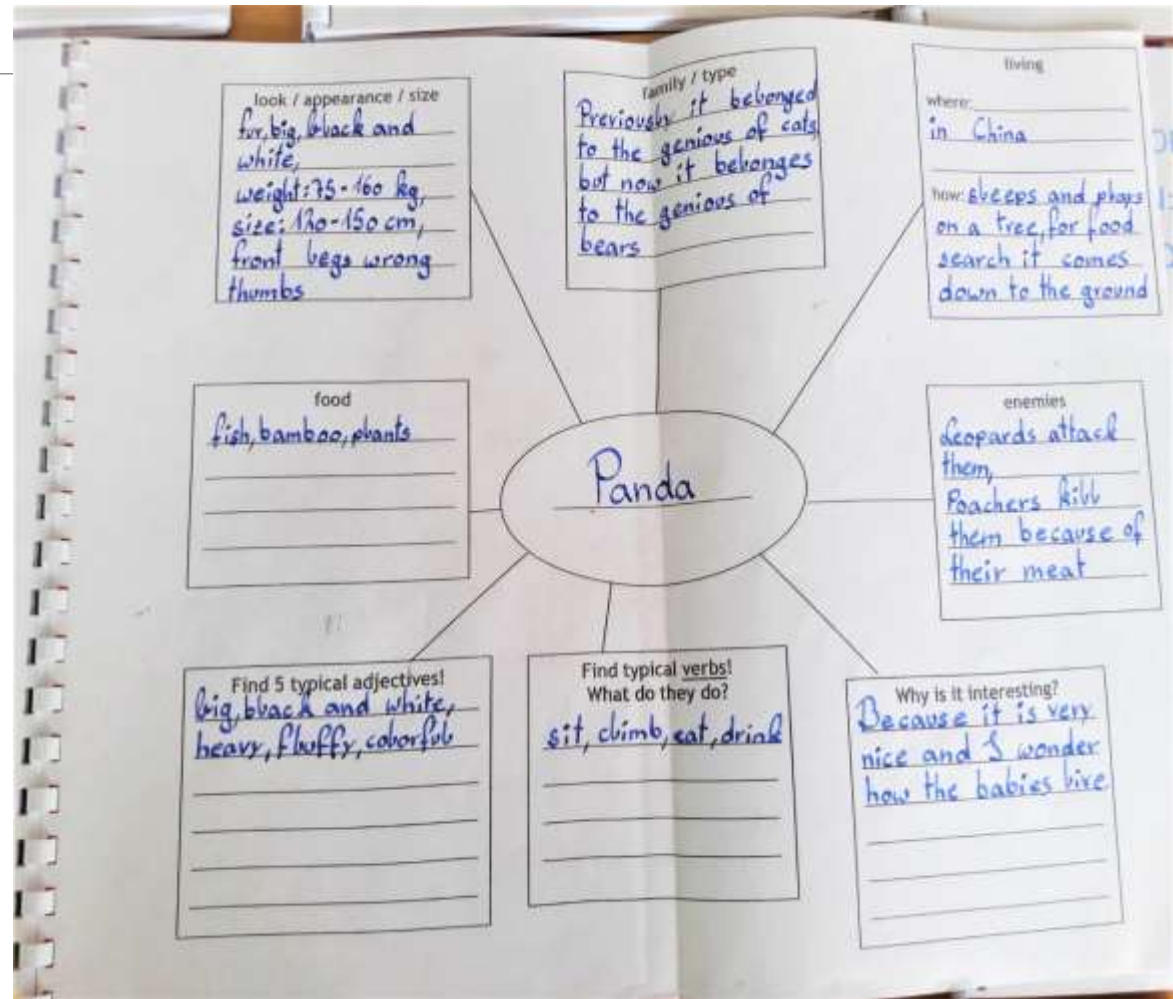 look / appearance / size
fur, big, black and
white,
weight: 75-160 kg,
size: 120-150 cm,
front legs wrong
thumbs
family / type
Previously it belonged
to the genious of cats,
but now it belonges
to the genious of
bears
living
where:
in China
how: sleeps and plays
on a tree, for food
search it comes
down to the ground
food
fish, bamboo, plants
Panda
enemies
Leopards attack
them,
Poachers kill
them because of
their meat
Find 5 typical adjectives!
big, black and white,
heavy, fluffy, colorful
Find typical verbs!
What do they do?
sit, climb, eat, drink
Why is it interesting?
Because it is very
nice and I wonder
how the babies live